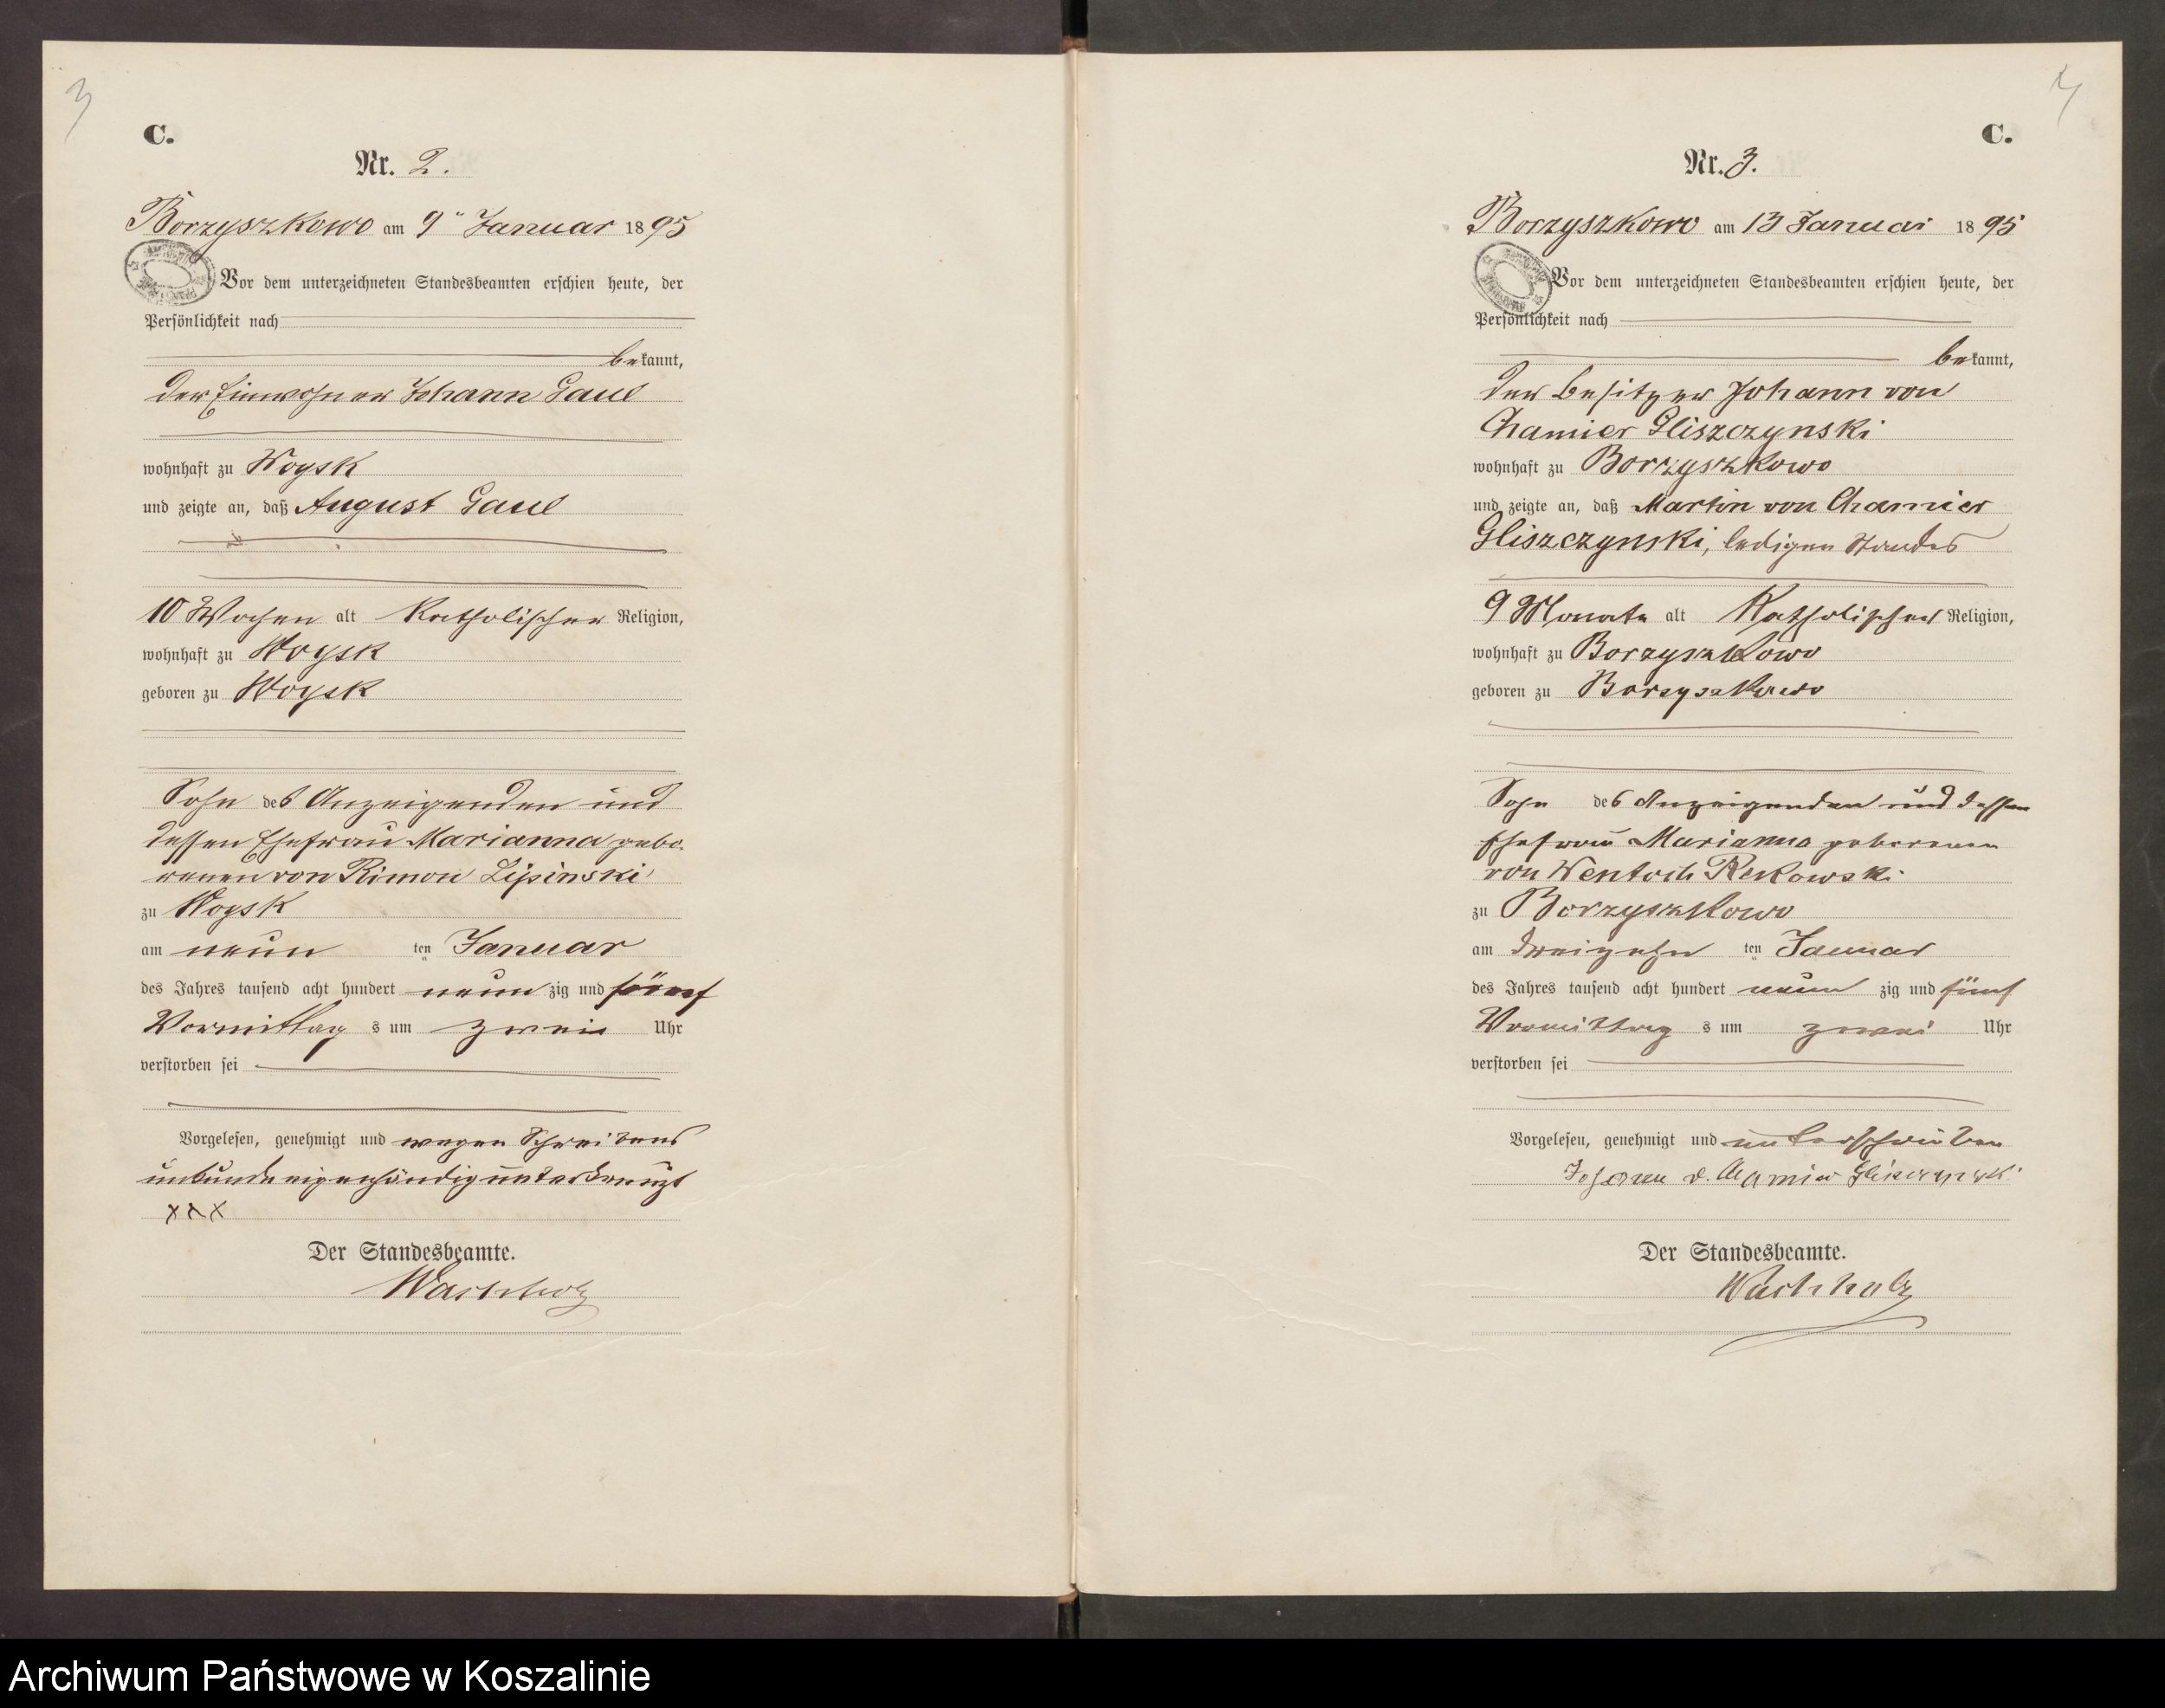 3
C.
Nr. 2.
Borzyszkowo am 9" Januar 1895
Vor dem unterzeichneten Standesbeamten erschien heute, der
Persönlichkeit nach
bekannt,
der Einwohner Johann Gaul
wohnhaft zu Woysk
und zeigte an, daß August Gaul
10 Wochen alt Katholischer Religion,
wohnhaft zu Woysk
geboren zu Woysk
Sohn des Anzeigenden und
dessen Ehefrau Marianna gebo-
renen von Rimon Lipinski
zu Woysk
am neun ten Januar
des Jahres tausend acht hundert neun zig und fünf
Vormittag s um zwei Uhr
verstorben sei
Vorgelesen, genehmigt und wegen Schreibens
unkunde eigenhändig unterkreuzt
xxx
Der Standesbeamte.
Wachholz
4
C.
Nr. 3.
Borzyszkowo am 13 Januar 1895
Vor dem unterzeichneten Standesbeamten erschien heute, der
Persönlichkeit nach
bekannt,
der Besitzer Johann von
Chamier Gliszczynski
wohnhaft zu Borzyszkowo
und zeigte an, daß Martin von Chamier
Gliszczynski, ledigen Standes
9 Monate alt Katholischer Religion,
wohnhaft zu Borzyszkowo
geboren zu Borzyszkowo
Sohn des Anzeigenden und dessen
Ehefrau Marianna geborenen
von Wentoch Rekowski
zu Borzyszkowo
am dreizehn ten Januar
des Jahres tausend acht hundert neun zig und fünf
Vormittag s um zwei Uhr
verstorben sei
Vorgelesen, genehmigt und unterschrieben
Johann v. Chamier Gliszczynski
Der Standesbeamte.
Wachholz
Archiwum Państwowe w Koszalinie